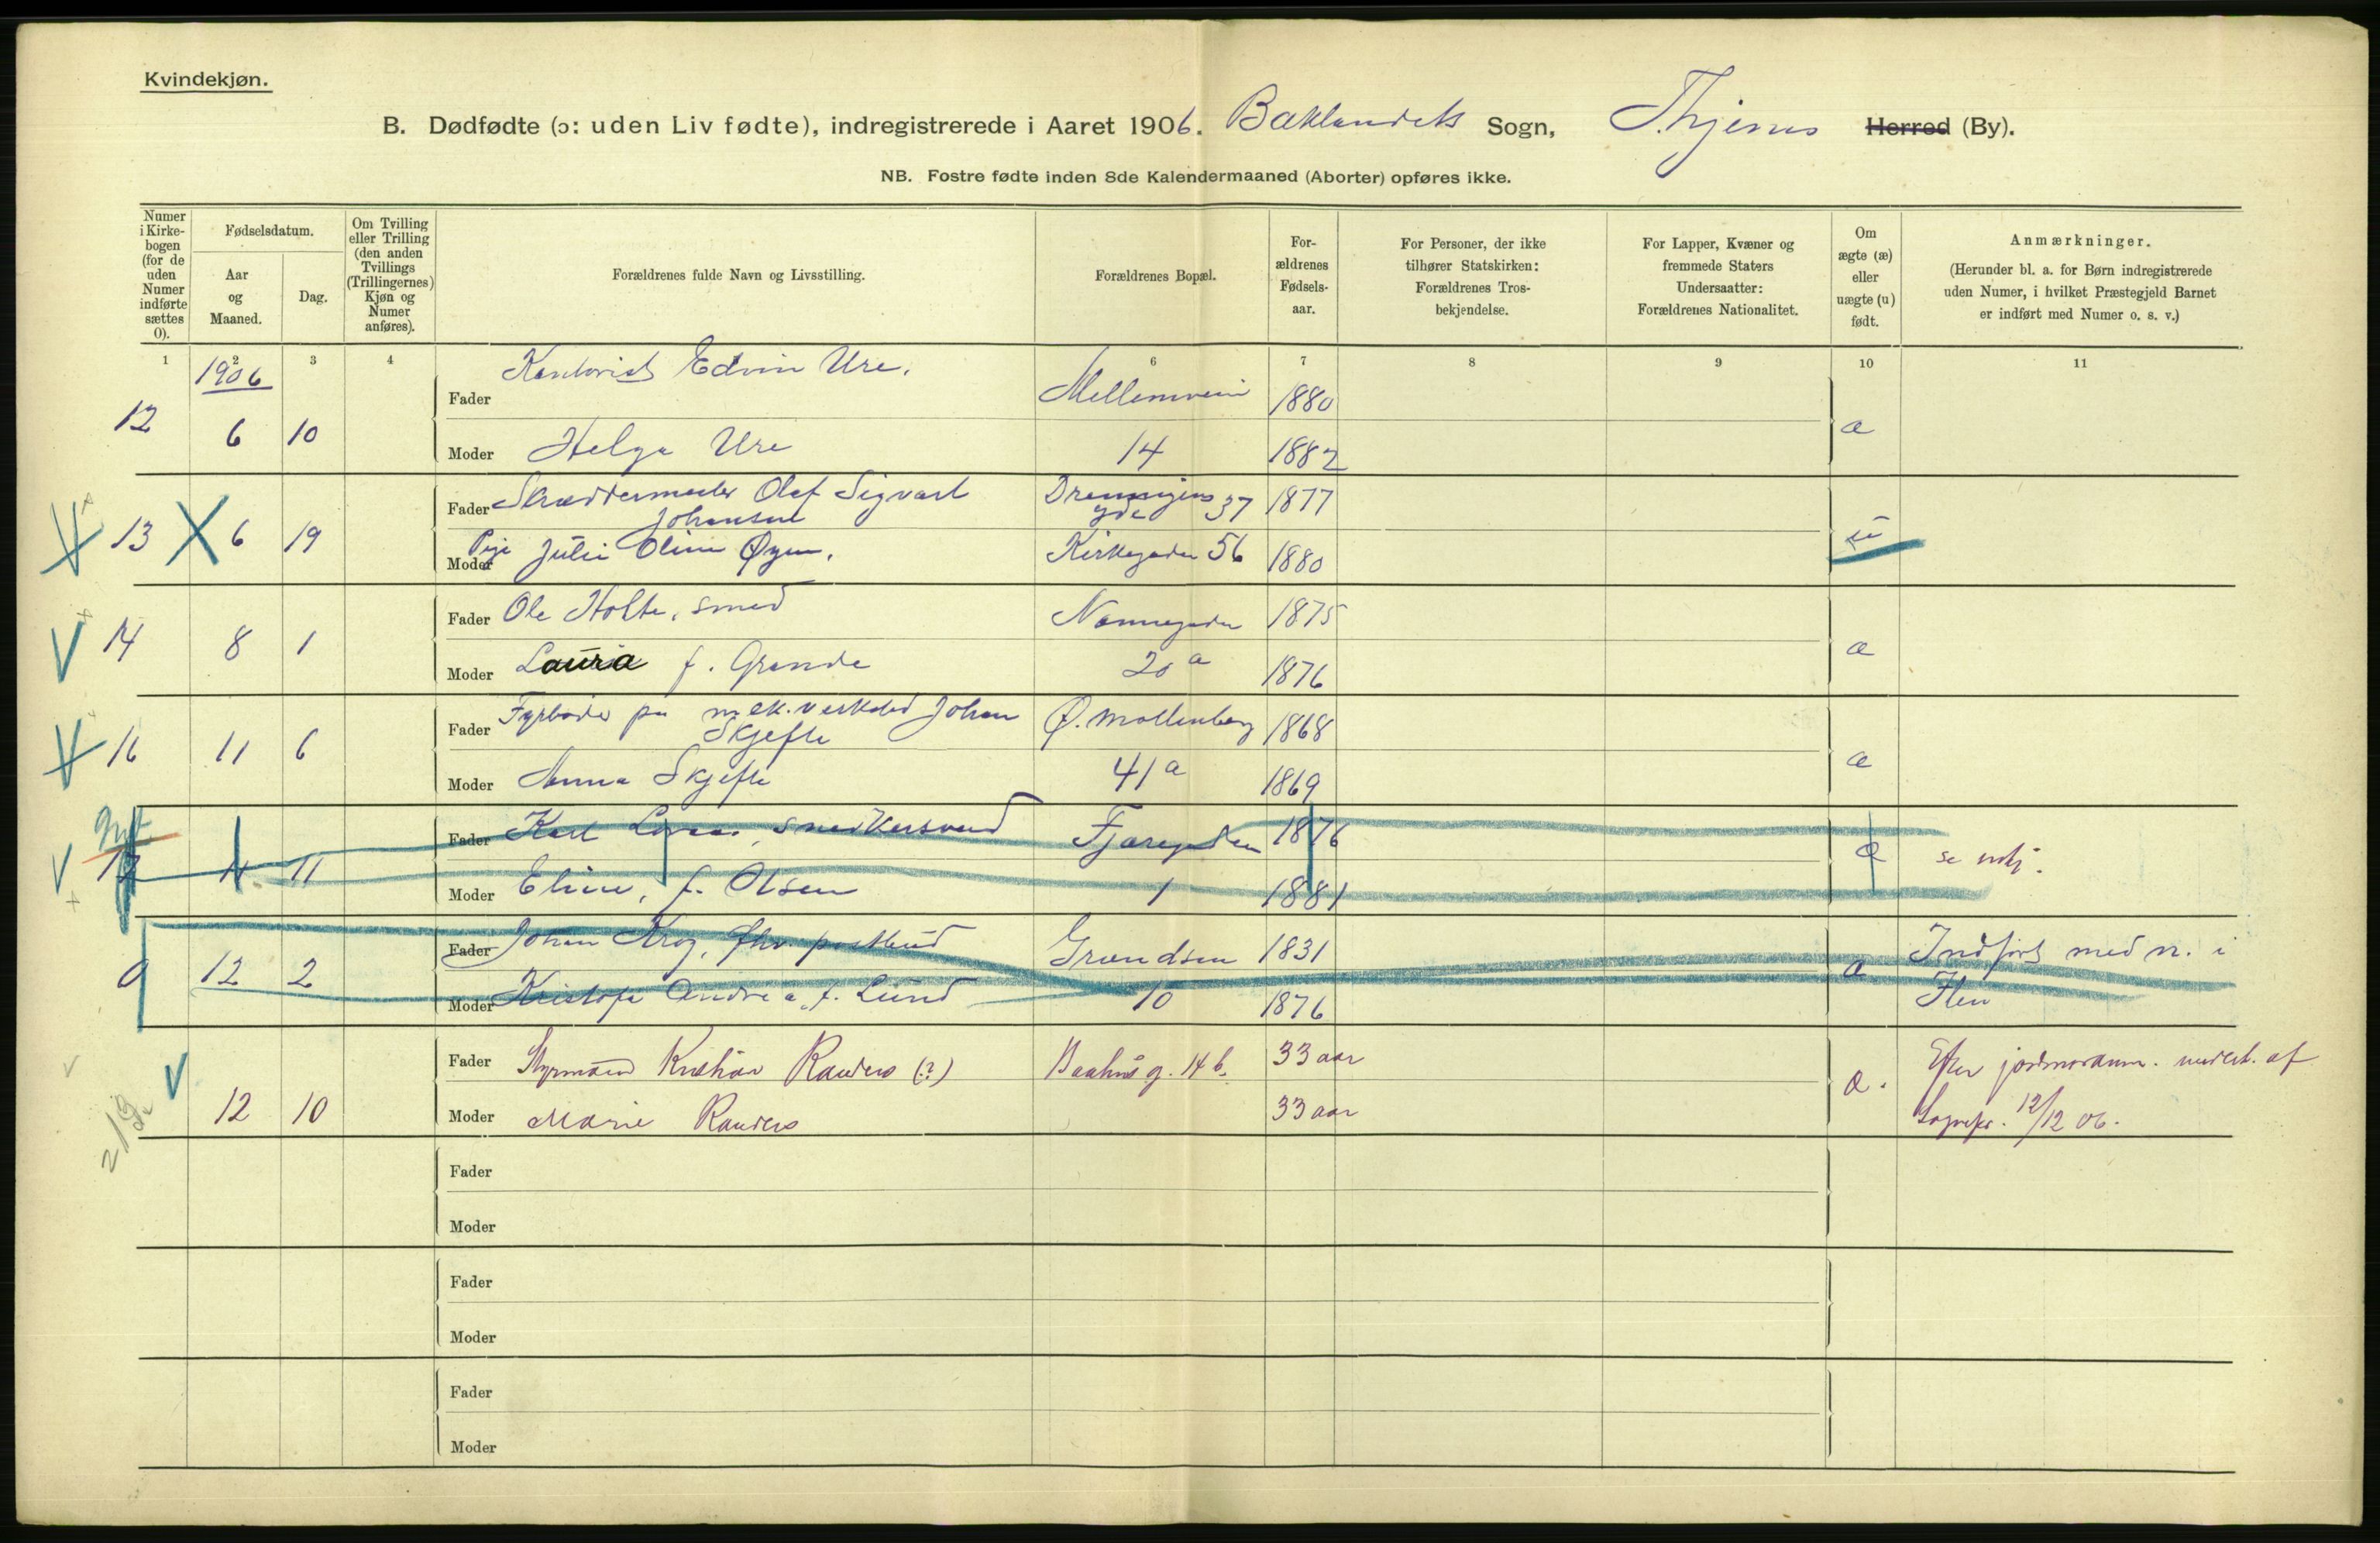 Kvindekjøn.
B. Dødfødte (ɔ: uden Liv fødte), indregistrerede i Aaret 1906. Baklandets Sogn, Thjems Herred (By).
NB. Fostre fødte inden 8de Kalendermaaned (Aborter) opføres ikke.
Numer i Kirke-bogen (for de uden Numer indførte sættes 0).
Fødselsdatum.
Aar og Maaned.
Dag.
Om Tvilling eller Trilling (den anden Tvillings (Trillingernes) Kjøn og Numer anføres).
Forældrenes fulde Navn og Livsstilling.
Forældrenes Bopæl.
For-ældrenes Fødsels-aar.
For Personer, der ikke tilhører Statskirken: Forældrenes Tros-bekjendelse.
For Lapper, Kvæner og fremmede Staters Undersaatter: Forældrenes Nationalitet.
Om ægte (æ) eller uægte (u) født.
Anmærkninger.
(Herunder bl. a. for Børn indregistrerede uden Numer, i hvilket Præstegjeld Barnet er indført med Numer o. s. v.)
1 2 3 4 6 7 8 9 10 11
1906
Fader Kontorist Edvin Ure. Mellemveien 1880
12 6 10 æ
Moder Helga Ure 14 1882
Fader Skræddermester Olaf Sigvart Johansen 37 1877
13 6 19 u
Moder Pige Julie Oline Øyen. Kirkegaden 56 1880
Fader Ole Holte, smed Nonnegaden 1875
14 8 1 æ
Moder Laura f. Grande 20a 1876
Fader Fyrbøder på mek. verksted Johan Skjefte Ø. Møllenberg 1868
16 11 6 æ
Moder Anna Skjefte 41a 1869
Fader Karl snedkersvend Fjæregaden 1876
17 11 11 æ se
Moder Eline, f. Olsen 1 1881
Fader Johan Krog, fhv. postbud Grændsen 1831 Indført med n. i
0 12 2 æ
Moder Andrea, f. Lund 10 1876 Ilen
Fader Styrmand Kristian Randers (?) Baahus g. 14 b. 33 aar Efter jordmor af
12 10 æ.
Moder Marie Randers 33 aar Sognepr. 12/12 06.
Fader
Moder
Fader
Moder
Fader
Moder